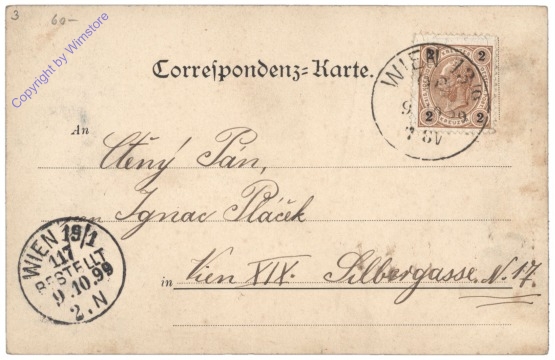 3 60-
Copyright by Wimstore
Correspondenz-Karte.
WIEN
2 2
KREUZER
2 2
9
7-8V
An
Ctěný Pán,
Ignac Pláček
in Vien XIX. Silbergasse. N. 17.
WIEN 19/1
117
BESTELLT
9.10.99
2.N